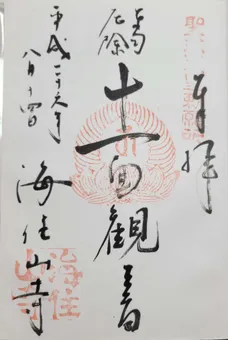 奉拝
厄除
十一面觀音
海住山寺
平成二十六年
八月十四日
海住
山寺